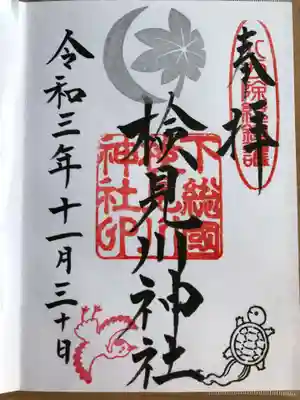 奉拝
検見川神社
下総國
神社印
令和三年十一月三十日